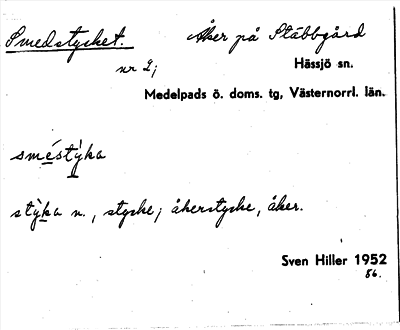 Smedstycket. Åker på Stabbgård
nr 2;
Hässjö sn.
Medelpads ö. doms. tg, Västernorrl. län.
sméstỳka
stỳka n., stycke; åkerstycke, åker.
Sven Hiller 1952
86.